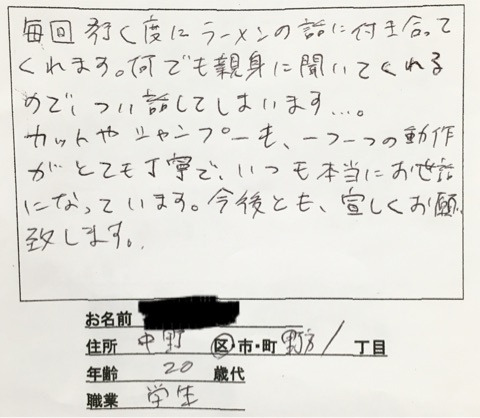 毎回行く度にラーメンの話に付き合って
くれます。何でも親身に聞いてくれる
ので、つい話してしまいます…。
カットやシャンプーも、一つ一つの動作
がとても丁寧で、いつも本当にお世話
になっています。今後とも、宜しくお願
致します。
お名前
住所 中野 区・市・町 野方 / 丁目
年齢 20 歳代
職業 学生